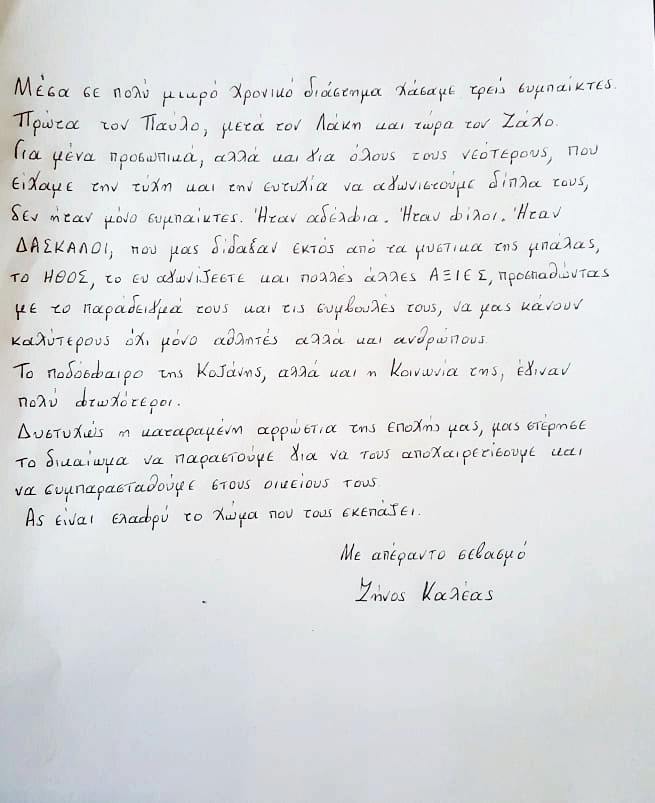 Μέσα σε πολύ μικρό χρονικό διάστημα χάσαμε τρείς συμπαίκτες.
Πρώτα τον Παύλο, μετά τον Λάκη και τώρα τον Ζάχο.
Για μένα προσωπικά, αλλά και για όλους τους νεότερους, που
είχαμε την τύχη και την ευτυχία να αγωνιστούμε δίπλα τους,
δεν ήταν μόνο συμπαίκτες. Ήταν αδέλφια. Ήταν φίλοι. Ήταν
ΔΑΣΚΑΛΟΙ, που μας δίδαξαν εκτός από τα μυστικα της μπάλας,
το ΗΘΟΣ, το ευ αγωνίζεστε και πολλές άλλες ΑΞΙΕΣ, προσπαθώντας
με το παράδειγμά τους και τις συμβουλές τους, να μας κάνουν
καλύτερους όχι μόνο αθλητές αλλά και ανθρώπους.
Το ποδόσφαιρο της Κοζάνης, αλλά και η Κοινωνία της, έγιναν
πολύ φτωχότεροι.
Δυστυχώς η καταραμένη αρρώστια της εποχής μας, μας στέρησε
το δικαίωμα να παραστούμε για να τους αποχαιρετίσουμε και
να συμπαρασταθούμε στους οικείους τους.
Ας είναι ελαφρύ το χώμα που τους σκεπάζει.
Με απέραντο σεβασμό
Ζήνος Καλέας